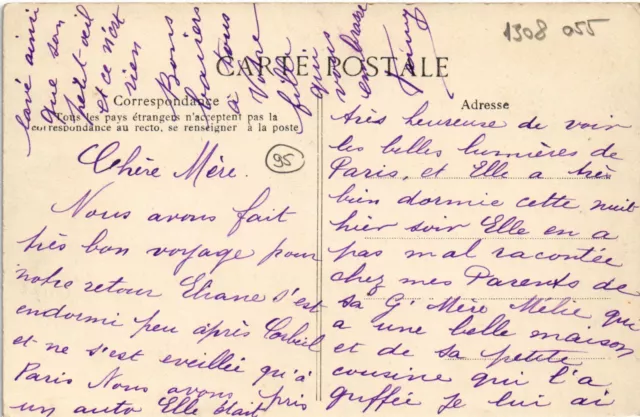 1308 055
CARTE POSTALE
Correspondance
Tous les pays étrangers n'acceptent pas la
correspondance au recto, se renseigner à la poste
Adresse
95
Chère Mère.
Nous avons fait
très bon voyage pour
notre retour Eliane s'est
endormi peu après Corbeil
et ne s'est eveillée qu'à
Paris Nous avons pris
un auto Elle était
très heureuse de voir
les belles lumières de
Paris, et Elle a très
bien dormie cette nuit
hier soir Elle en a
pas mal racontée
chez mes Parents de
sa Gd Mère Mélie qui
a une belle maison
et de sa petite
cousine qui l'a
guffée je lui ai
lavé ainsi
que son
petit oeil
et ce n'est
rien
Bons
baisers
à tous
Votre
fille
qui
vous
embrasse